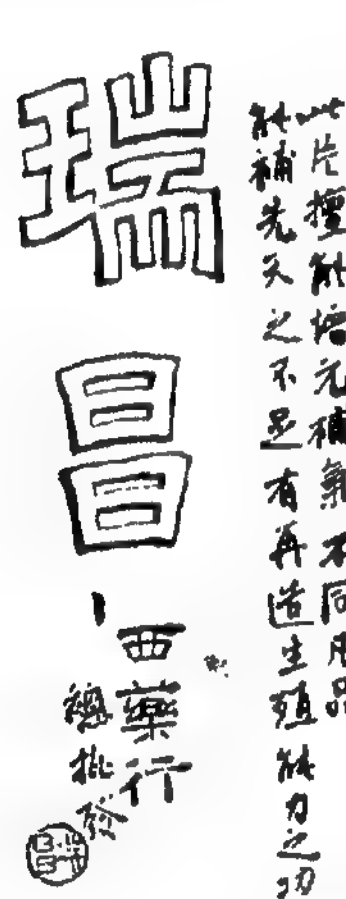 此片擅能培元補氣不同凡品
能補先天之不足有再造生殖能力之功
瑞昌
西藥行
總批發